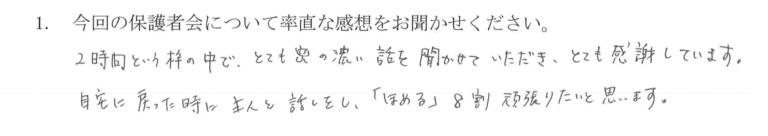 1. 今回の保護者会について率直な感想をお聞かせください。
2時間という枠の中で、とても内容の濃い話を聞かせていただき、とても感謝しています。
自宅に戻った時に主人と話しをし、「ほめる」8割頑張りたいと思います。